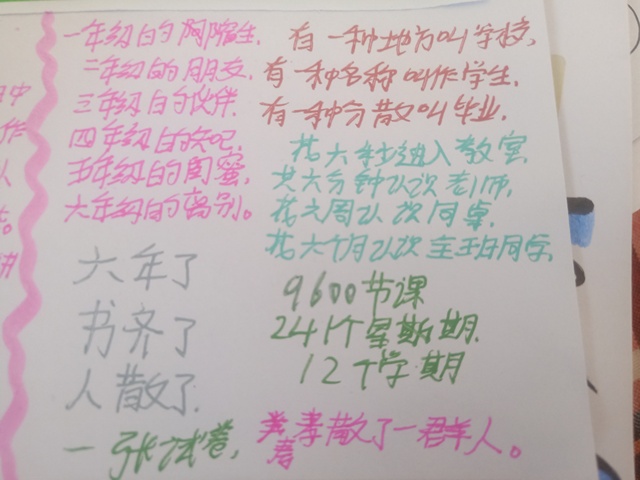 一年级的陌陌生,
二年级的朋友,
三年级的伙伴,
四年级的
五年级的闺蜜,
六年级的离别。
六年了
书齐了
人散了.
一张试卷,
有一种地方叫学校,
有一种名称叫作学生,
有一种分散叫毕业,
花六秒进入教室,
共六分钟认次老师,
花六周认次同桌,
花六个月认次全班同学,
9600节课
241个星期期,
12个学期
散了一群人。